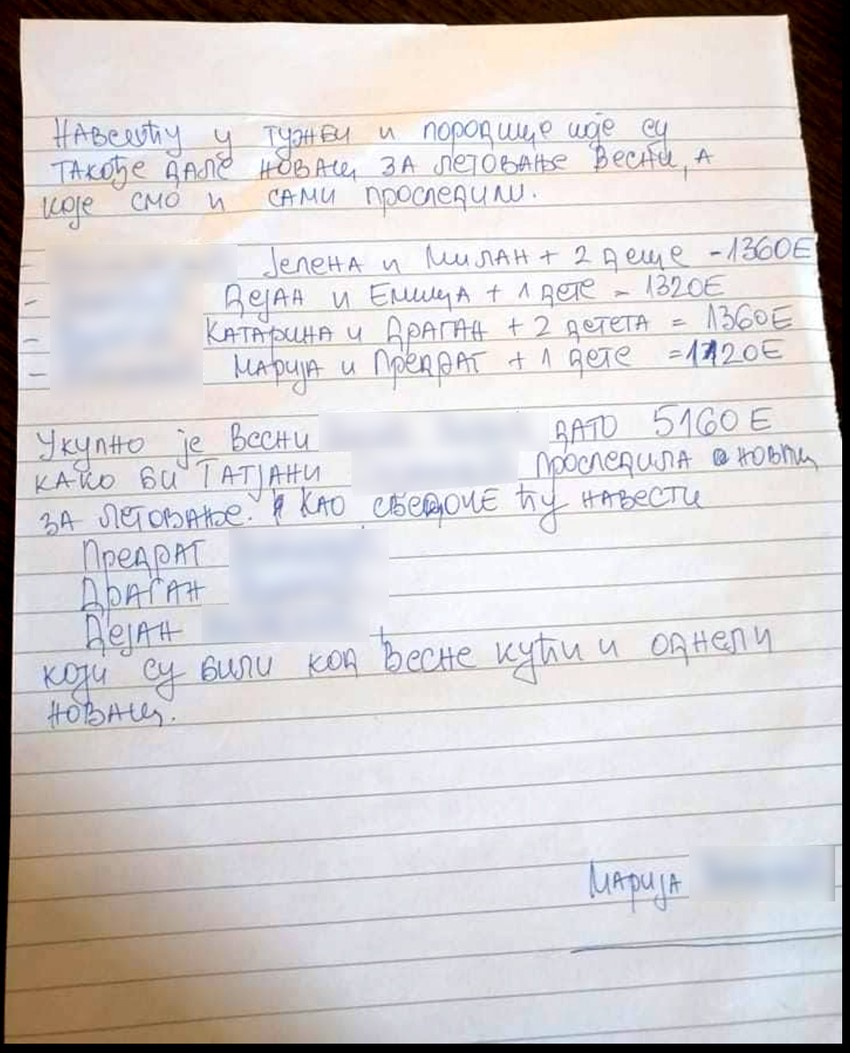 Навешћу у тужби и породице које су
такође дале новац за летовање Весни, а
које смо и сами проследили.
- Јелена и Милан + 2 деце - 1360E
- Дејан и Емица + 1 дете - 1320E
- Катарина и Драган + 2 детета = 1360E
- Марија и Предраг + 1 дете = 1120E
Укупно је Весни дато 5160 E
како би Татјани проследила новац
за летовање. Као сведоче ћу навести
Предраг
Драган
Дејан
који су били код Весне кући и однели
новац.
Марија